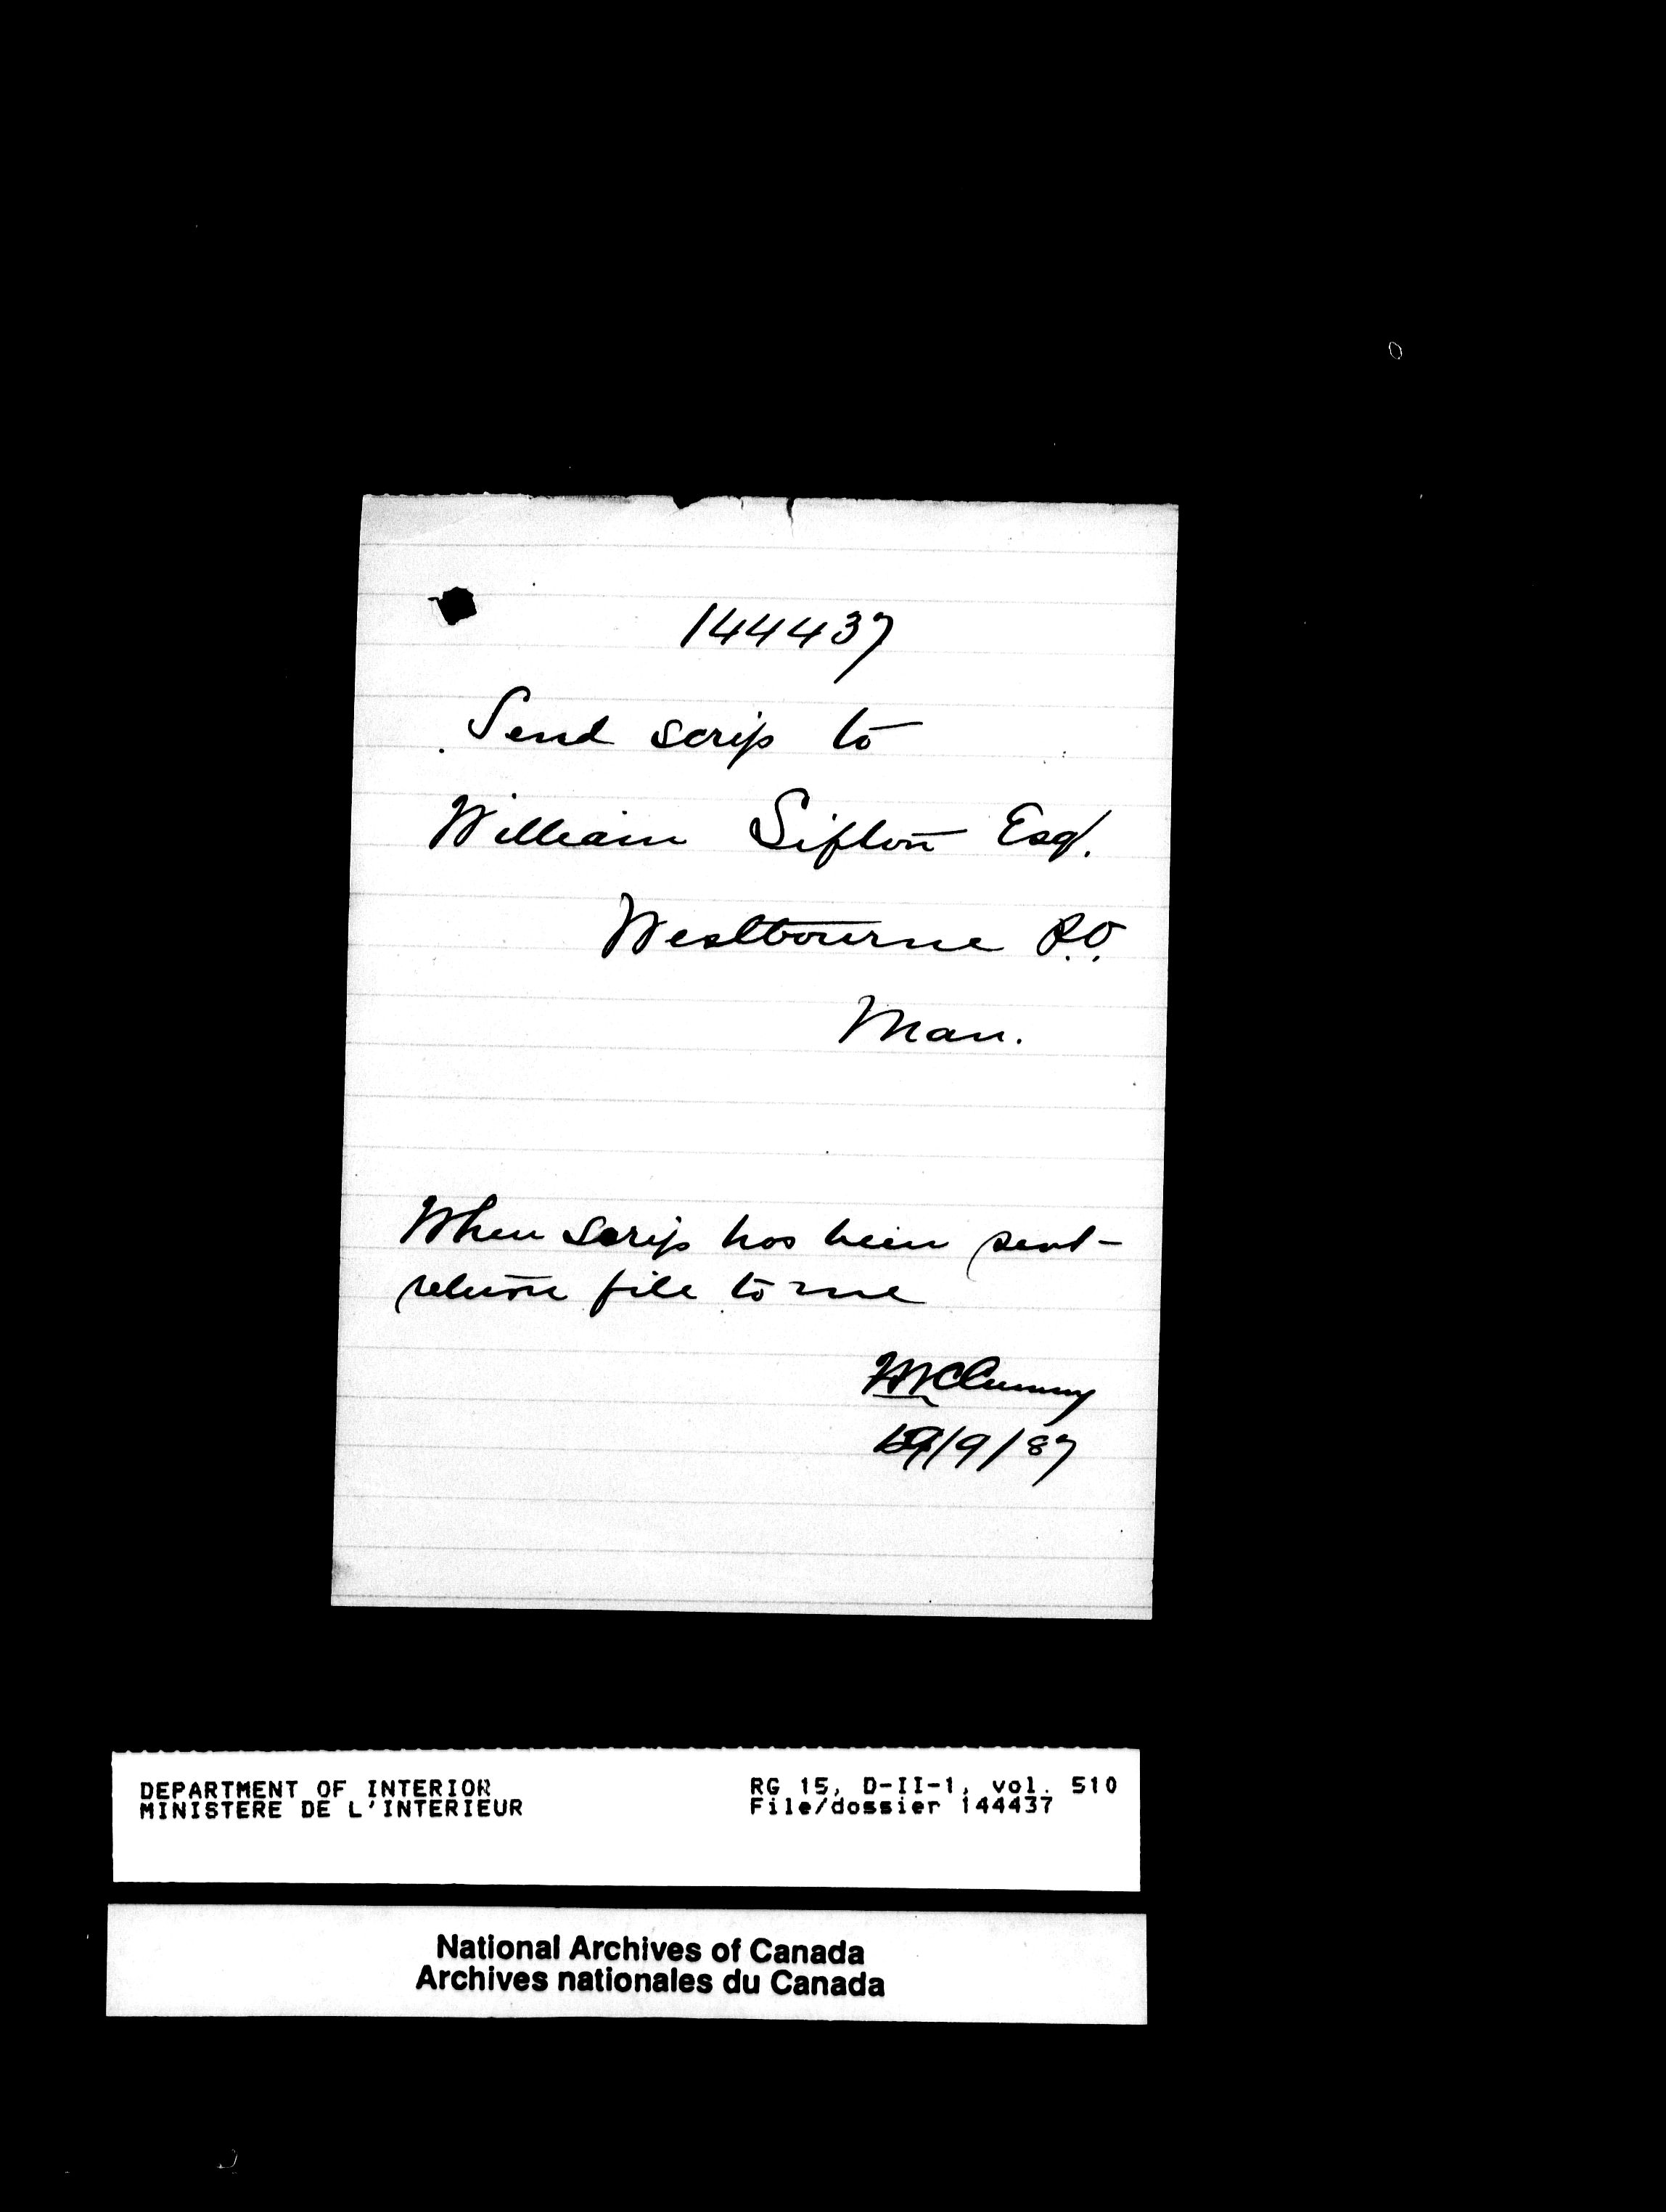 144437
Send scrip to
William Sifton Esq.
Westbourne P.O.
Man.
When scrip has been sent
return file to me
/9/87
DEPARTMENT OF INTERIOR
MINISTERE DE L'INTERIEUR
RG 15, D-II-1, vol. 510
File/dossier 144437
National Archives of Canada
Archives nationales du Canada